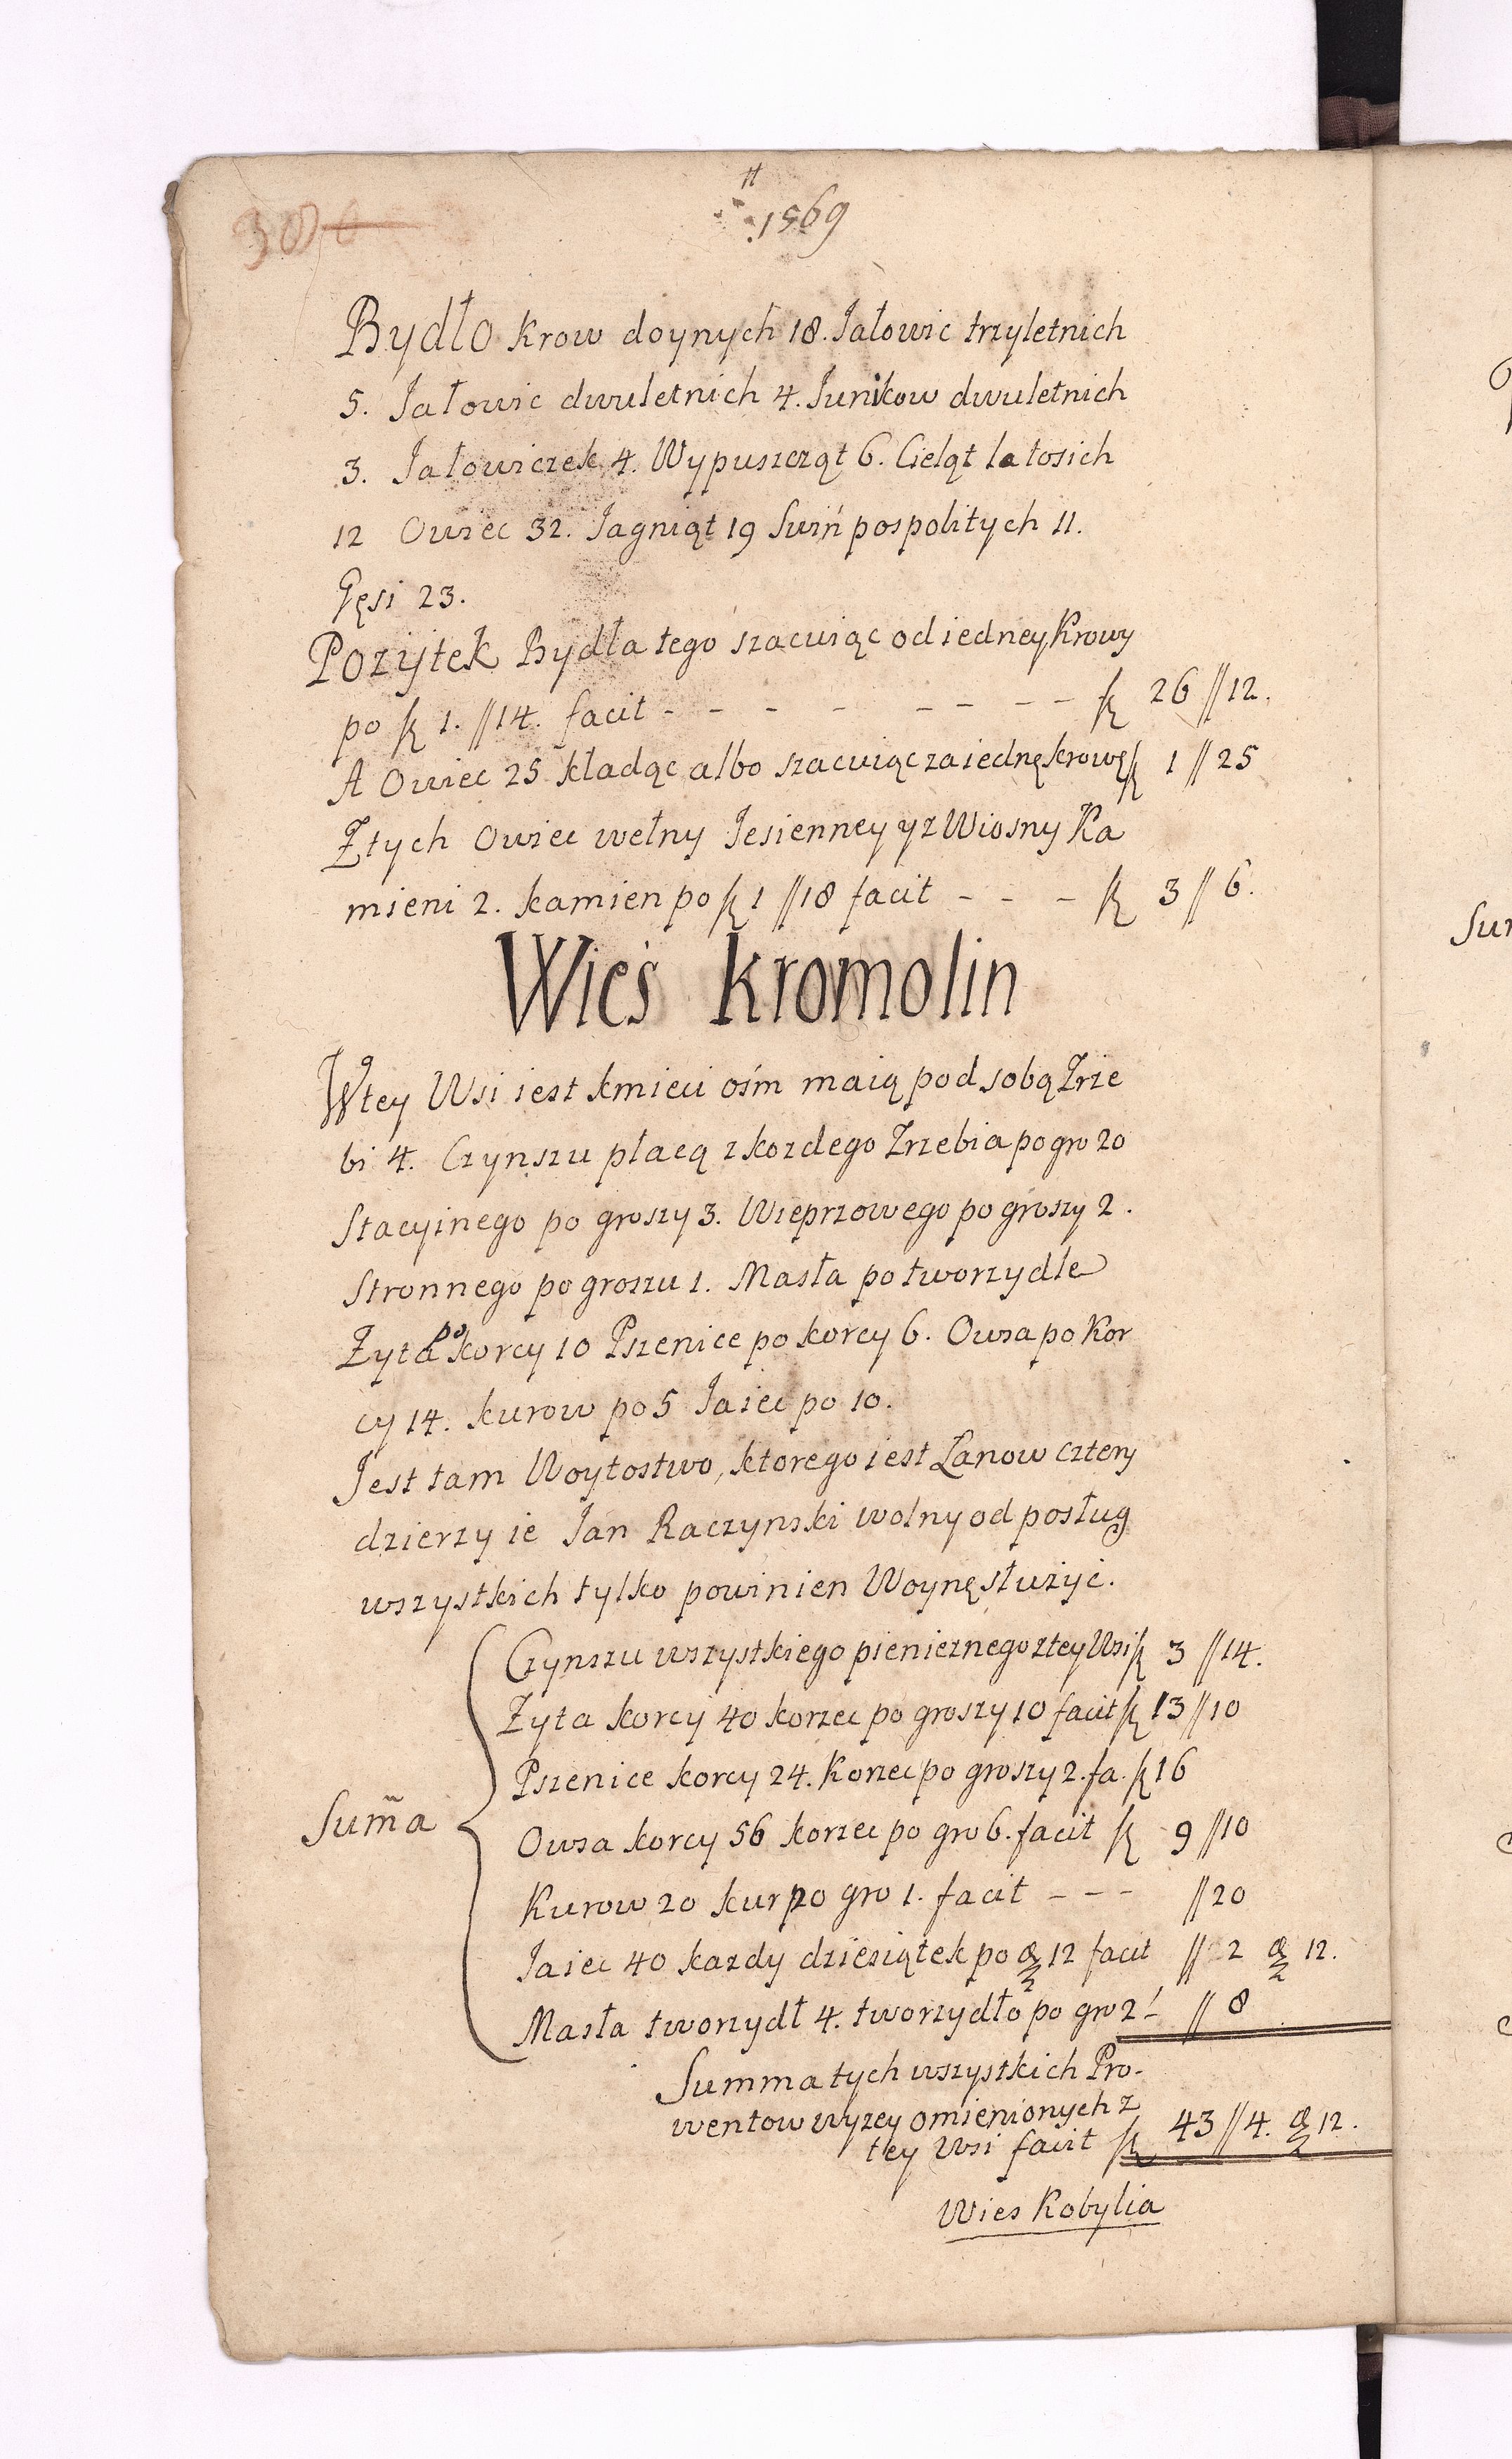 1569
380
Bydło krow doynych 18. Jałowic trzyletnich
5. Jałowic dwuletnich 4. Junikow dwuletnich
3. Jałowiczek 4. Wypuszcząt 6. Cieląt latosich
12 Owiec 32. Jagniąt 19 Swiń pospolitych 11.
Gęsi 23.
Pozÿtek Bydła tego szacuiąc od iedney Krowy
po ƙ 1. // 14. facit - - - - - - - - ƙ 26 // 12.
A Owiec 25 kładąc albo szacuiąc za iednę krowę ƙ 1 // 25
Z tych Owiec wełny Jesienney y z Wiosny Ka
mieni 2. kamien po ƙ 1 // 18 facit - - - ƙ 3 // 6.
Wieś Kromolin
W tey Wsi iest kmieci ośm maią pod sobą Zrze
bi 4. Czynszu płacą z kozdego Zrzebia po gro 20
Stacyinego po groszy 3. Wieprzowego po groszy 2.
Stronnego po groszu 1. Masła po tworzydle
Zyta po korcy 10 Pszenice po korcy 6. Owsa po Kor
cy 14. kurow po 5 Jaiec po 10.
Jest tam Woytostwo, ktorego iest Łanow cztery
dzierzy ie Jan Raczynski wolny od posług
wszystkich tylko powinien Woynę służyć.
Czynszu wszystkiego pienieznego z tey Wsi ƙ 3 // 14.
Zyta korcy 40 korzec po groszy 10 facit ƙ 13 // 10
Pszenice korcy 24. Korzec po groszy 2. fa. ƙ 16
Sum̃a
Owsa korcy 56 korzec po gro 6. facit ƙ 9 // 10
Kurow 20 kur po gro 1. facit - - - // 20
Jaiec 40 kazdy dziesiątek po 12 facit // 2 12.
Masła tworzydł 4. tworzydło po gro 2 - // 8
Summa tych wszystkich Pro-
wentow wyzey omienionych z
tey Wsi facit ƙ 43 // 4. 12.
Wies Kobylia